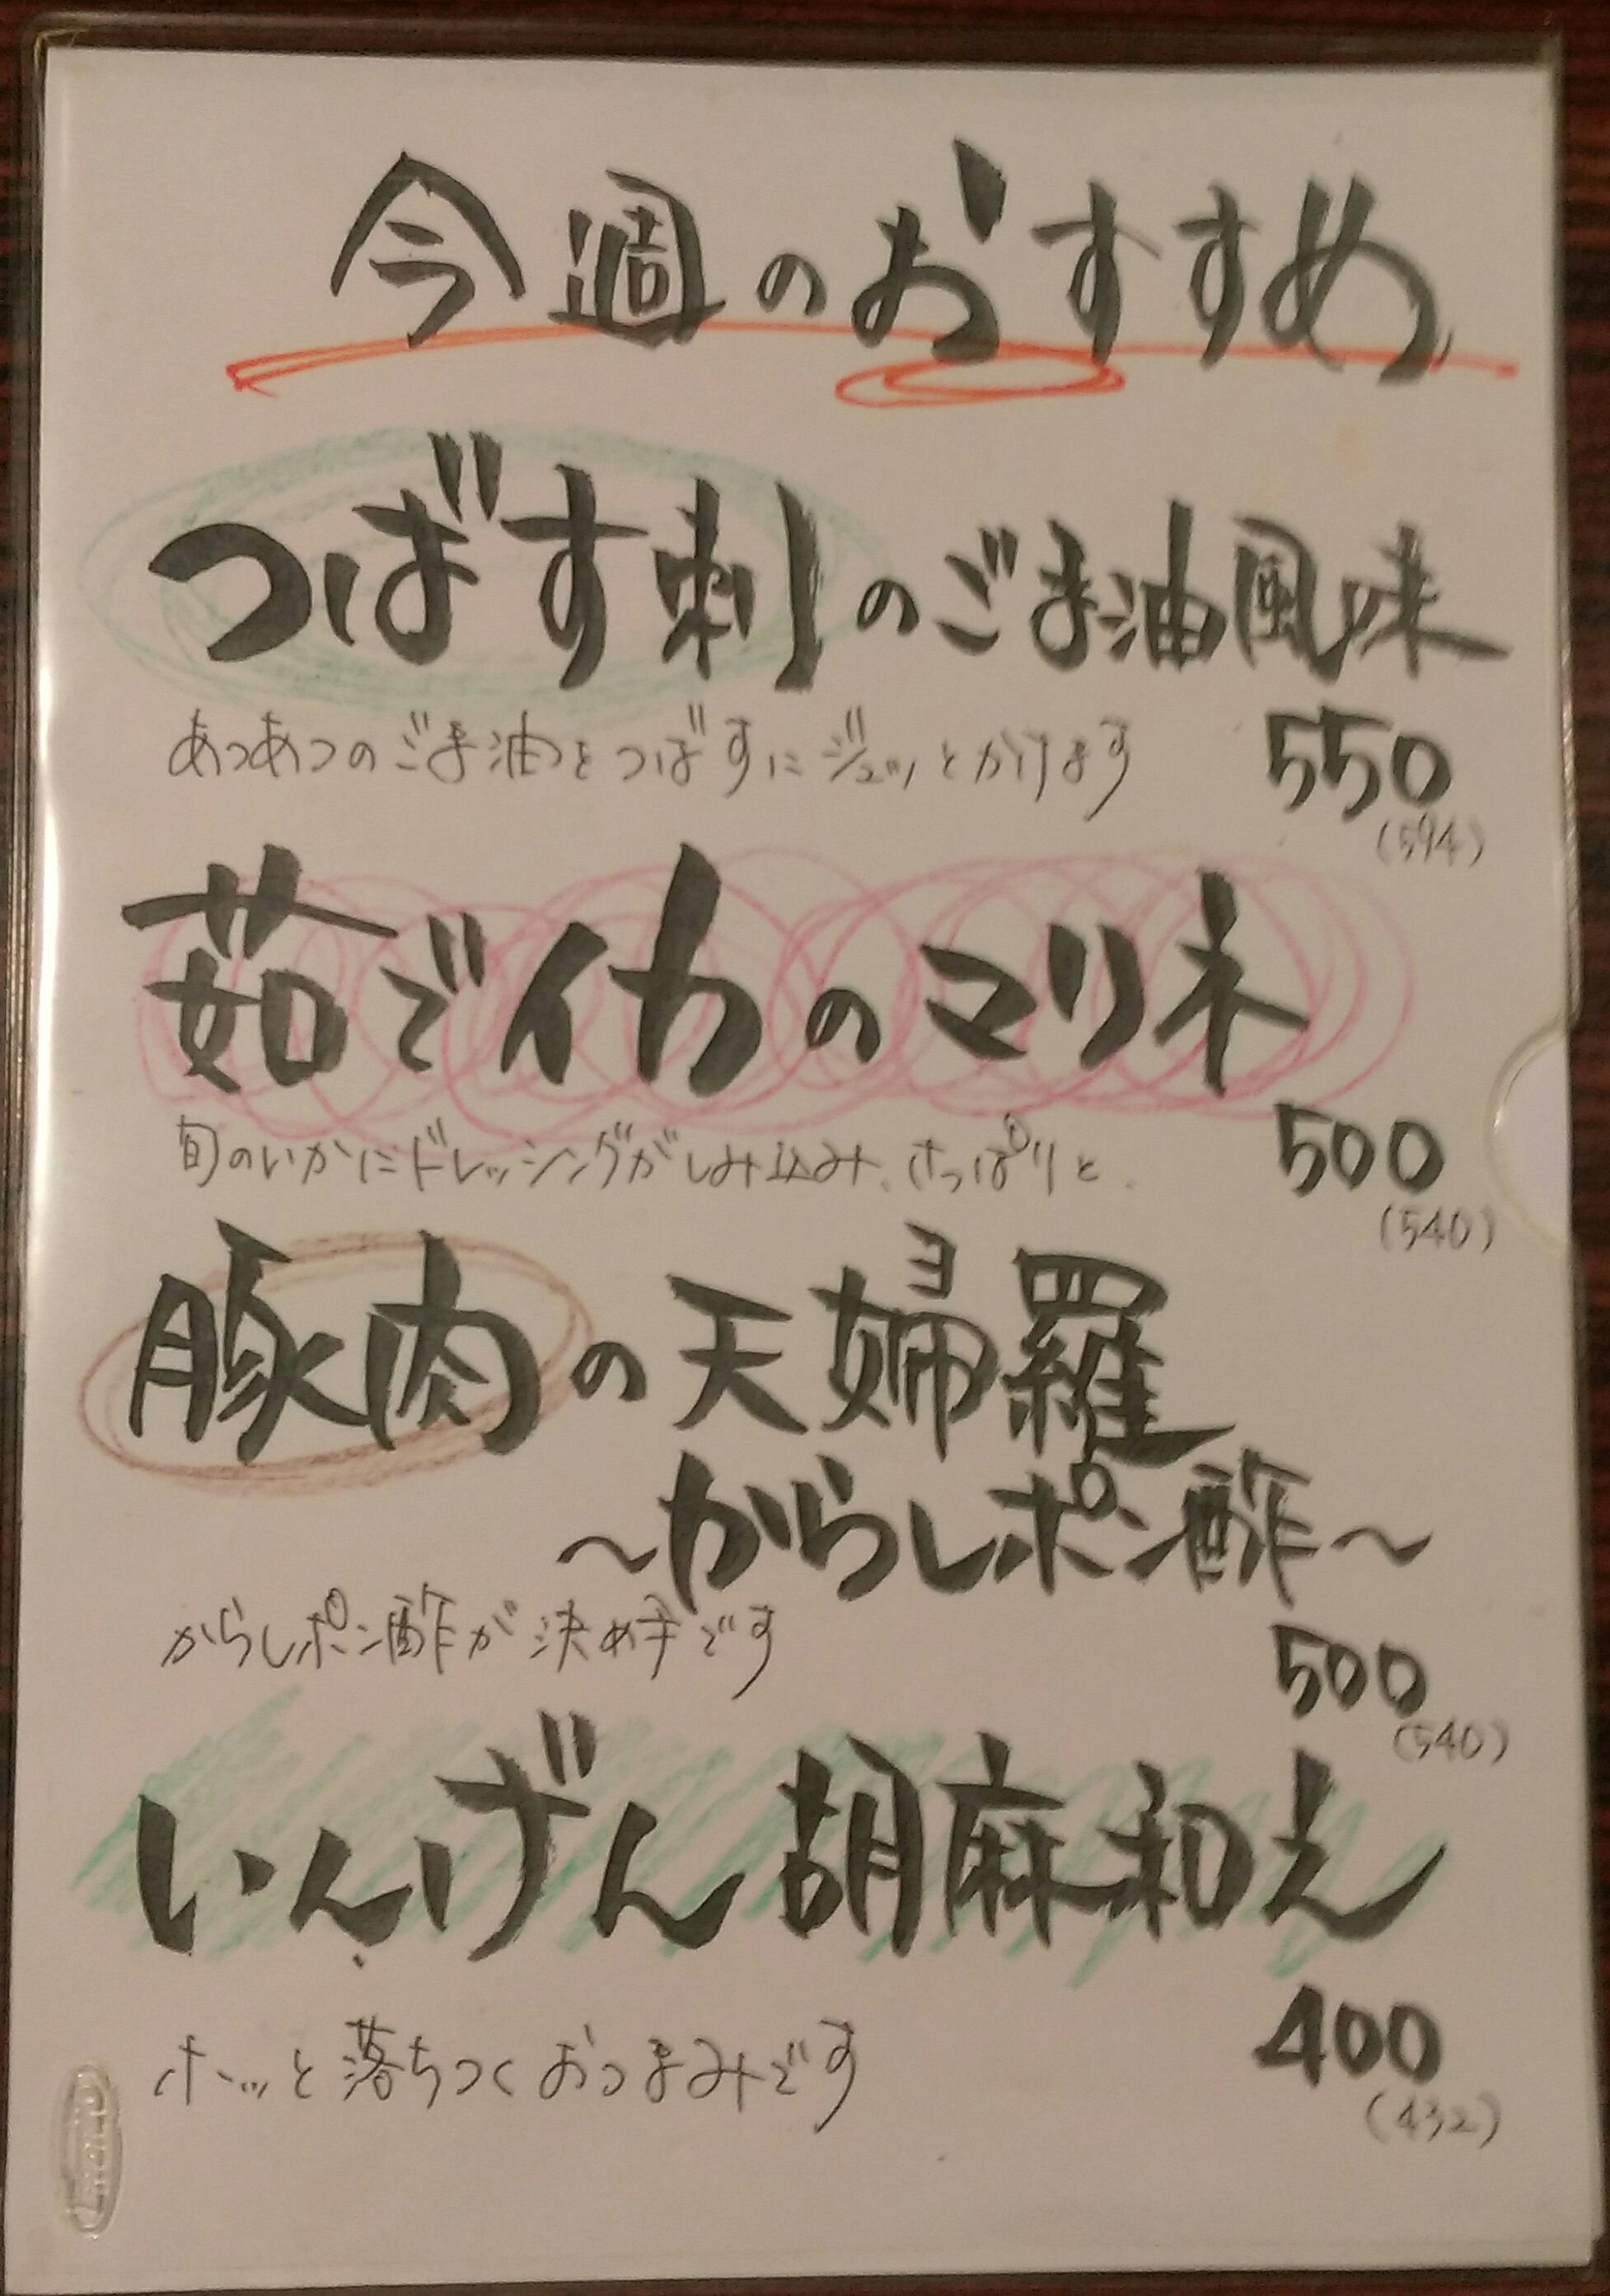 今週のおすすめ
つばす刺のごま油風味
あつあつのごま油をつばすにジュッとかけます
550
(594)
茹でイカのマリネ
旬のいかにドレッシングがしみ込み、さっぱりと。
500
(540)
豚肉の天婦羅
～からしポン酢～
からしポン酢が決め手です
500
(540)
いんげん胡麻和え
ホッと落ちつくおつまみです
400
(432)